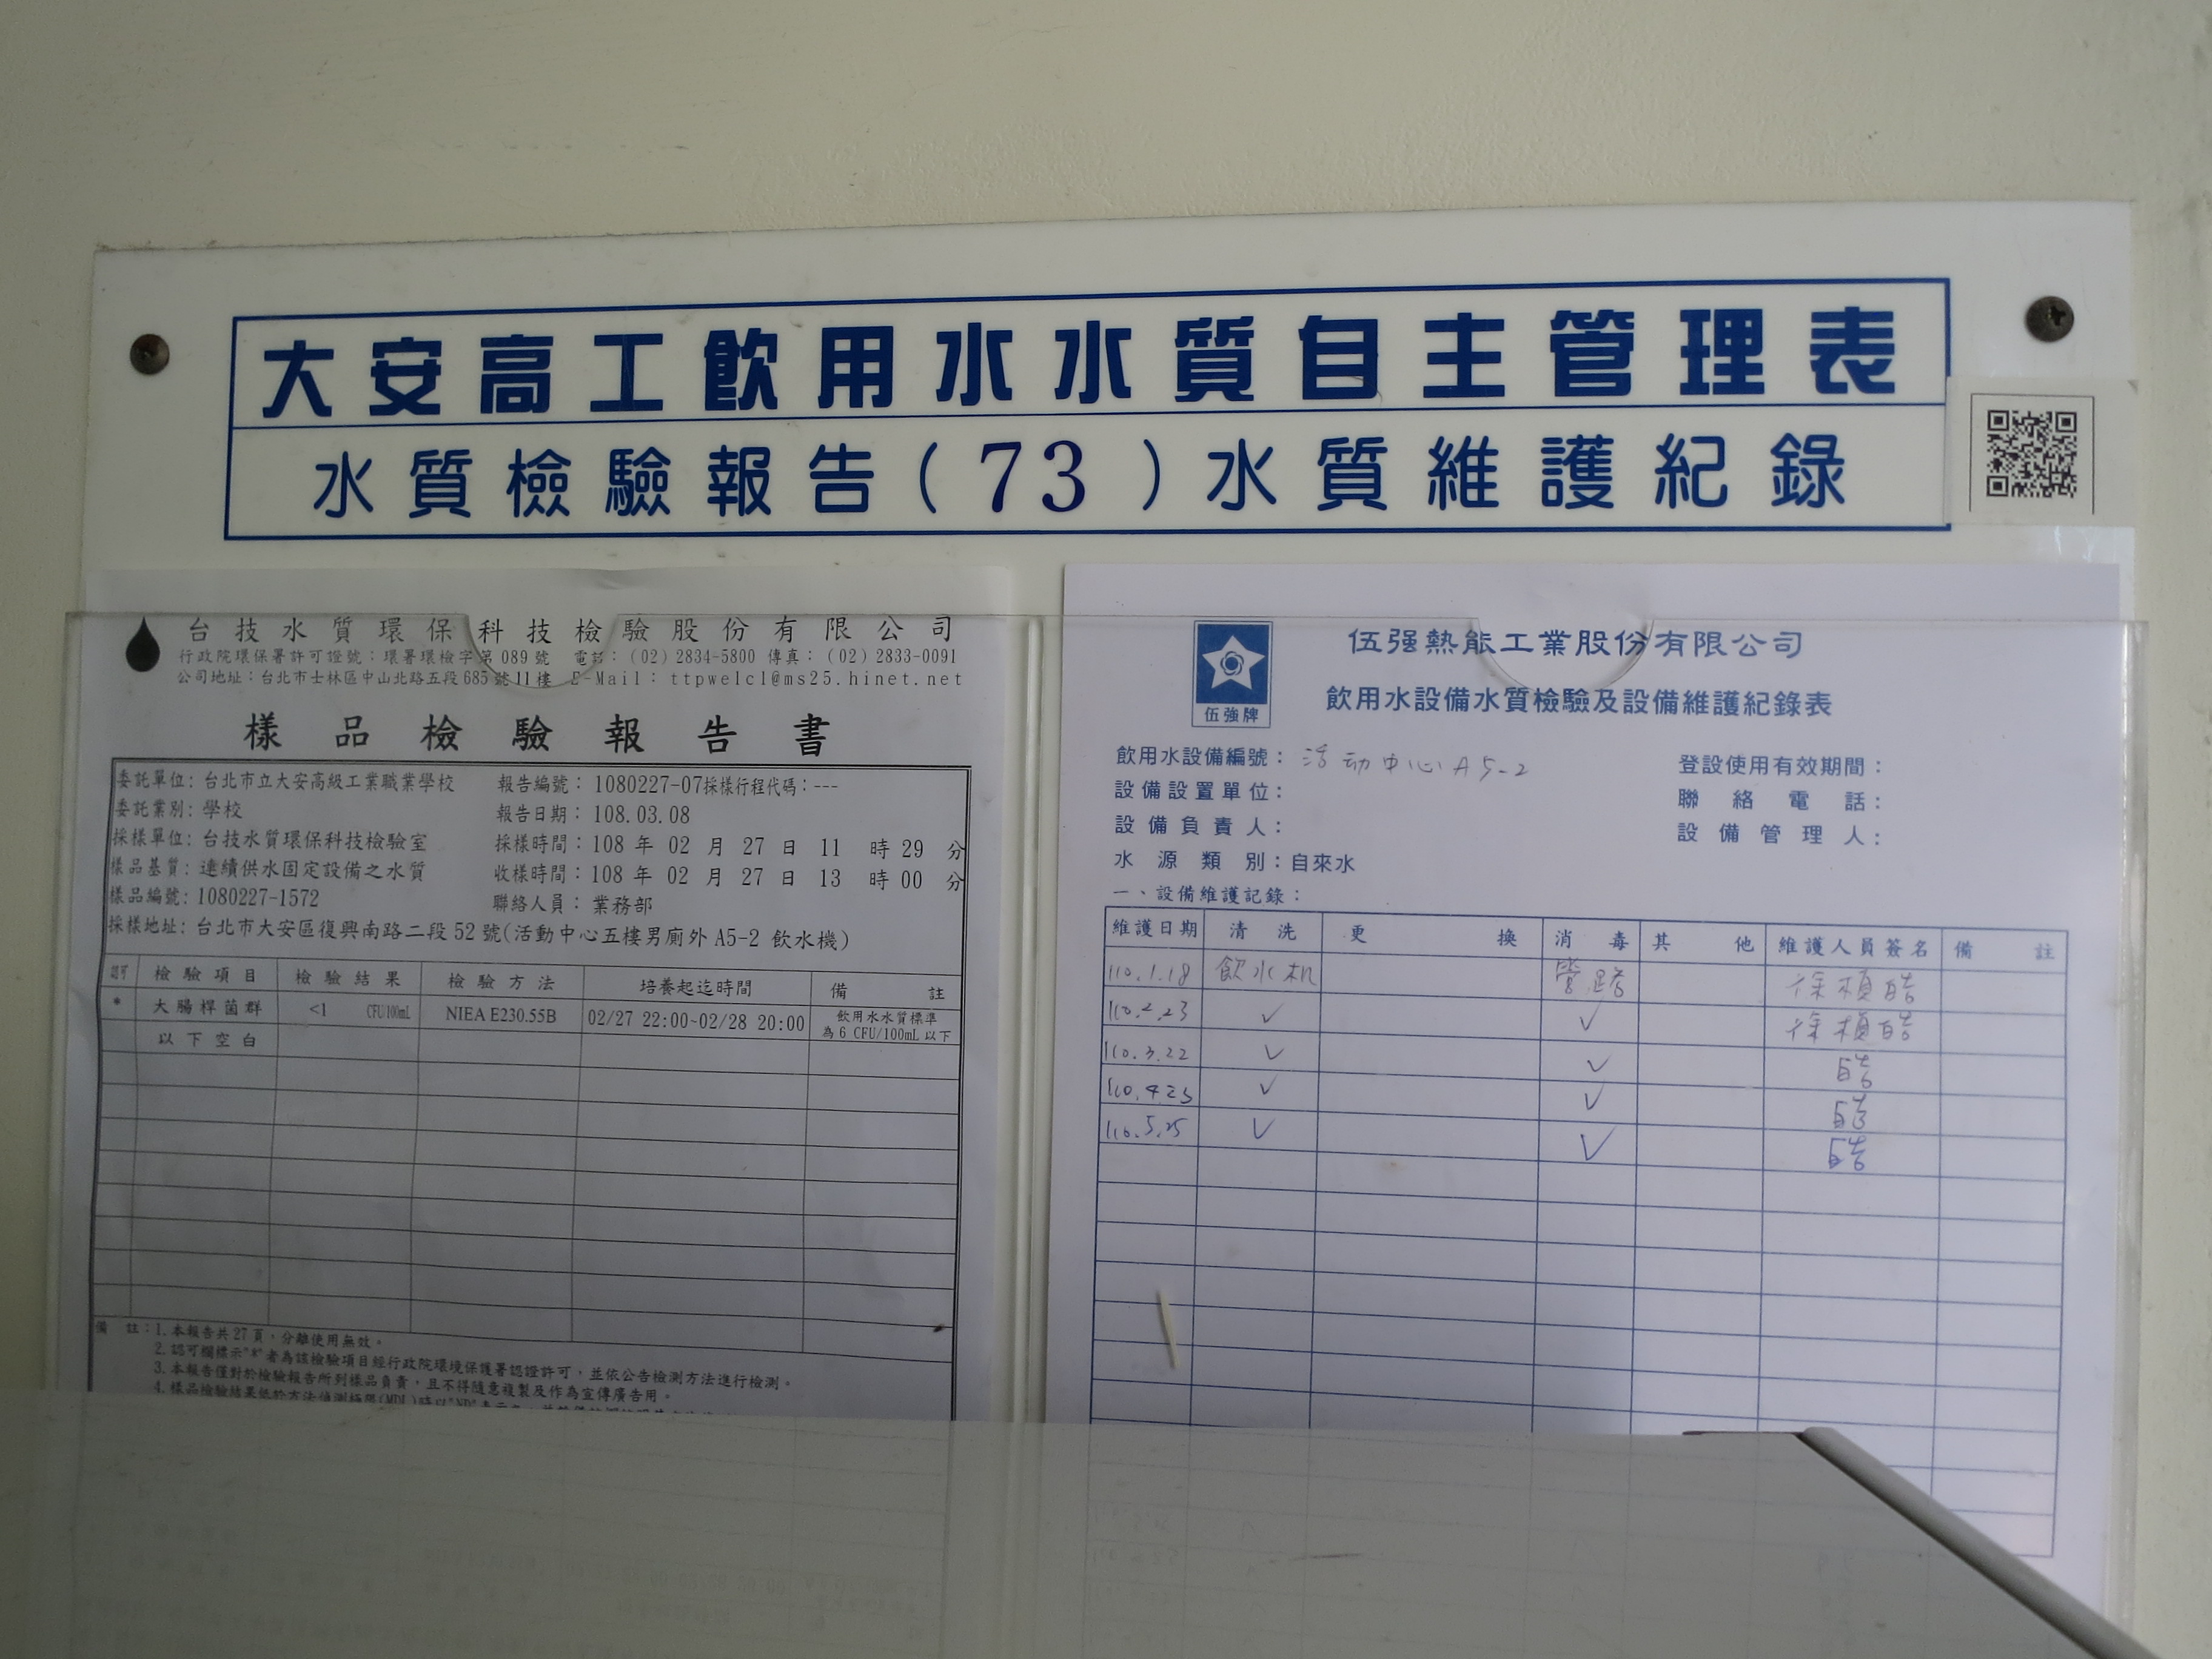 大安高工飲用水水質自主管理表
水質檢驗報告(73)水質維護紀錄
台技水質環保科技檢驗股份有限公司
行政院環保署許可證號：環署環檢字第 089 號 電話：(02) 2834-5800 傳真：(02) 2833-0091
公司地址：台北市士林區中山北路五段 685 號 11 樓 E-Mail： ttpwelcl@ms25.hinet.net
樣品檢驗報告書
委託單位: 台北市立大安高級工業職業學校 報告編號：1080227-07採樣行程代碼：---
委託業別: 學校 報告日期：108.03.08
採樣單位: 台技水質環保科技檢驗室 採樣時間：108 年 02 月 27 日 11 時 29 分
樣品基質: 連續供水固定設備之水質 收樣時間：108 年 02 月 27 日 13 時 00 分
樣品編號: 1080227-1572 聯絡人員：業務部
採樣地址: 台北市大安區復興南路二段 52 號(活動中心五樓男廁外 A5-2 飲水機)
認可 檢驗項目 檢驗結果 檢驗方法 培養起迄時間 備註
* 大腸桿菌群 <1 CFU/100mL NIEA E230.55B 02/27 22:00~02/28 20:00 飲用水水質標準
為 6 CFU/100mL 以下
以下空白
備 註：1. 本報告共 27 頁，分離使用無效。
2. 認可欄標示"*"者為該檢驗項目經行政院環境保護署認證許可，並依公告檢測方法進行檢測。
3. 本報告僅對於檢驗報告所列樣品負責，且不得隨意複製及作為宣傳廣告用。
4. 樣品檢驗結果低於方法偵測極限(MDL)時以"ND"表示
伍強牌
伍强熱能工業股份有限公司
飲用水設備水質檢驗及設備維護紀錄表
飲用水設備編號：活动中心A5-2 登設使用有效期間：
設備設置單位： 聯絡電話：
設備負責人： 設備管理人：
水源類別：自來水
一、設備維護記錄：
維護日期 清洗 更換 消毒 其他 維護人員簽名 備註
110.1.18 飲水机 管路
110.2.23 ✓ ✓
110.3.22 ✓ ✓
110.4.23 ✓ ✓
110.5.25 ✓ ✓